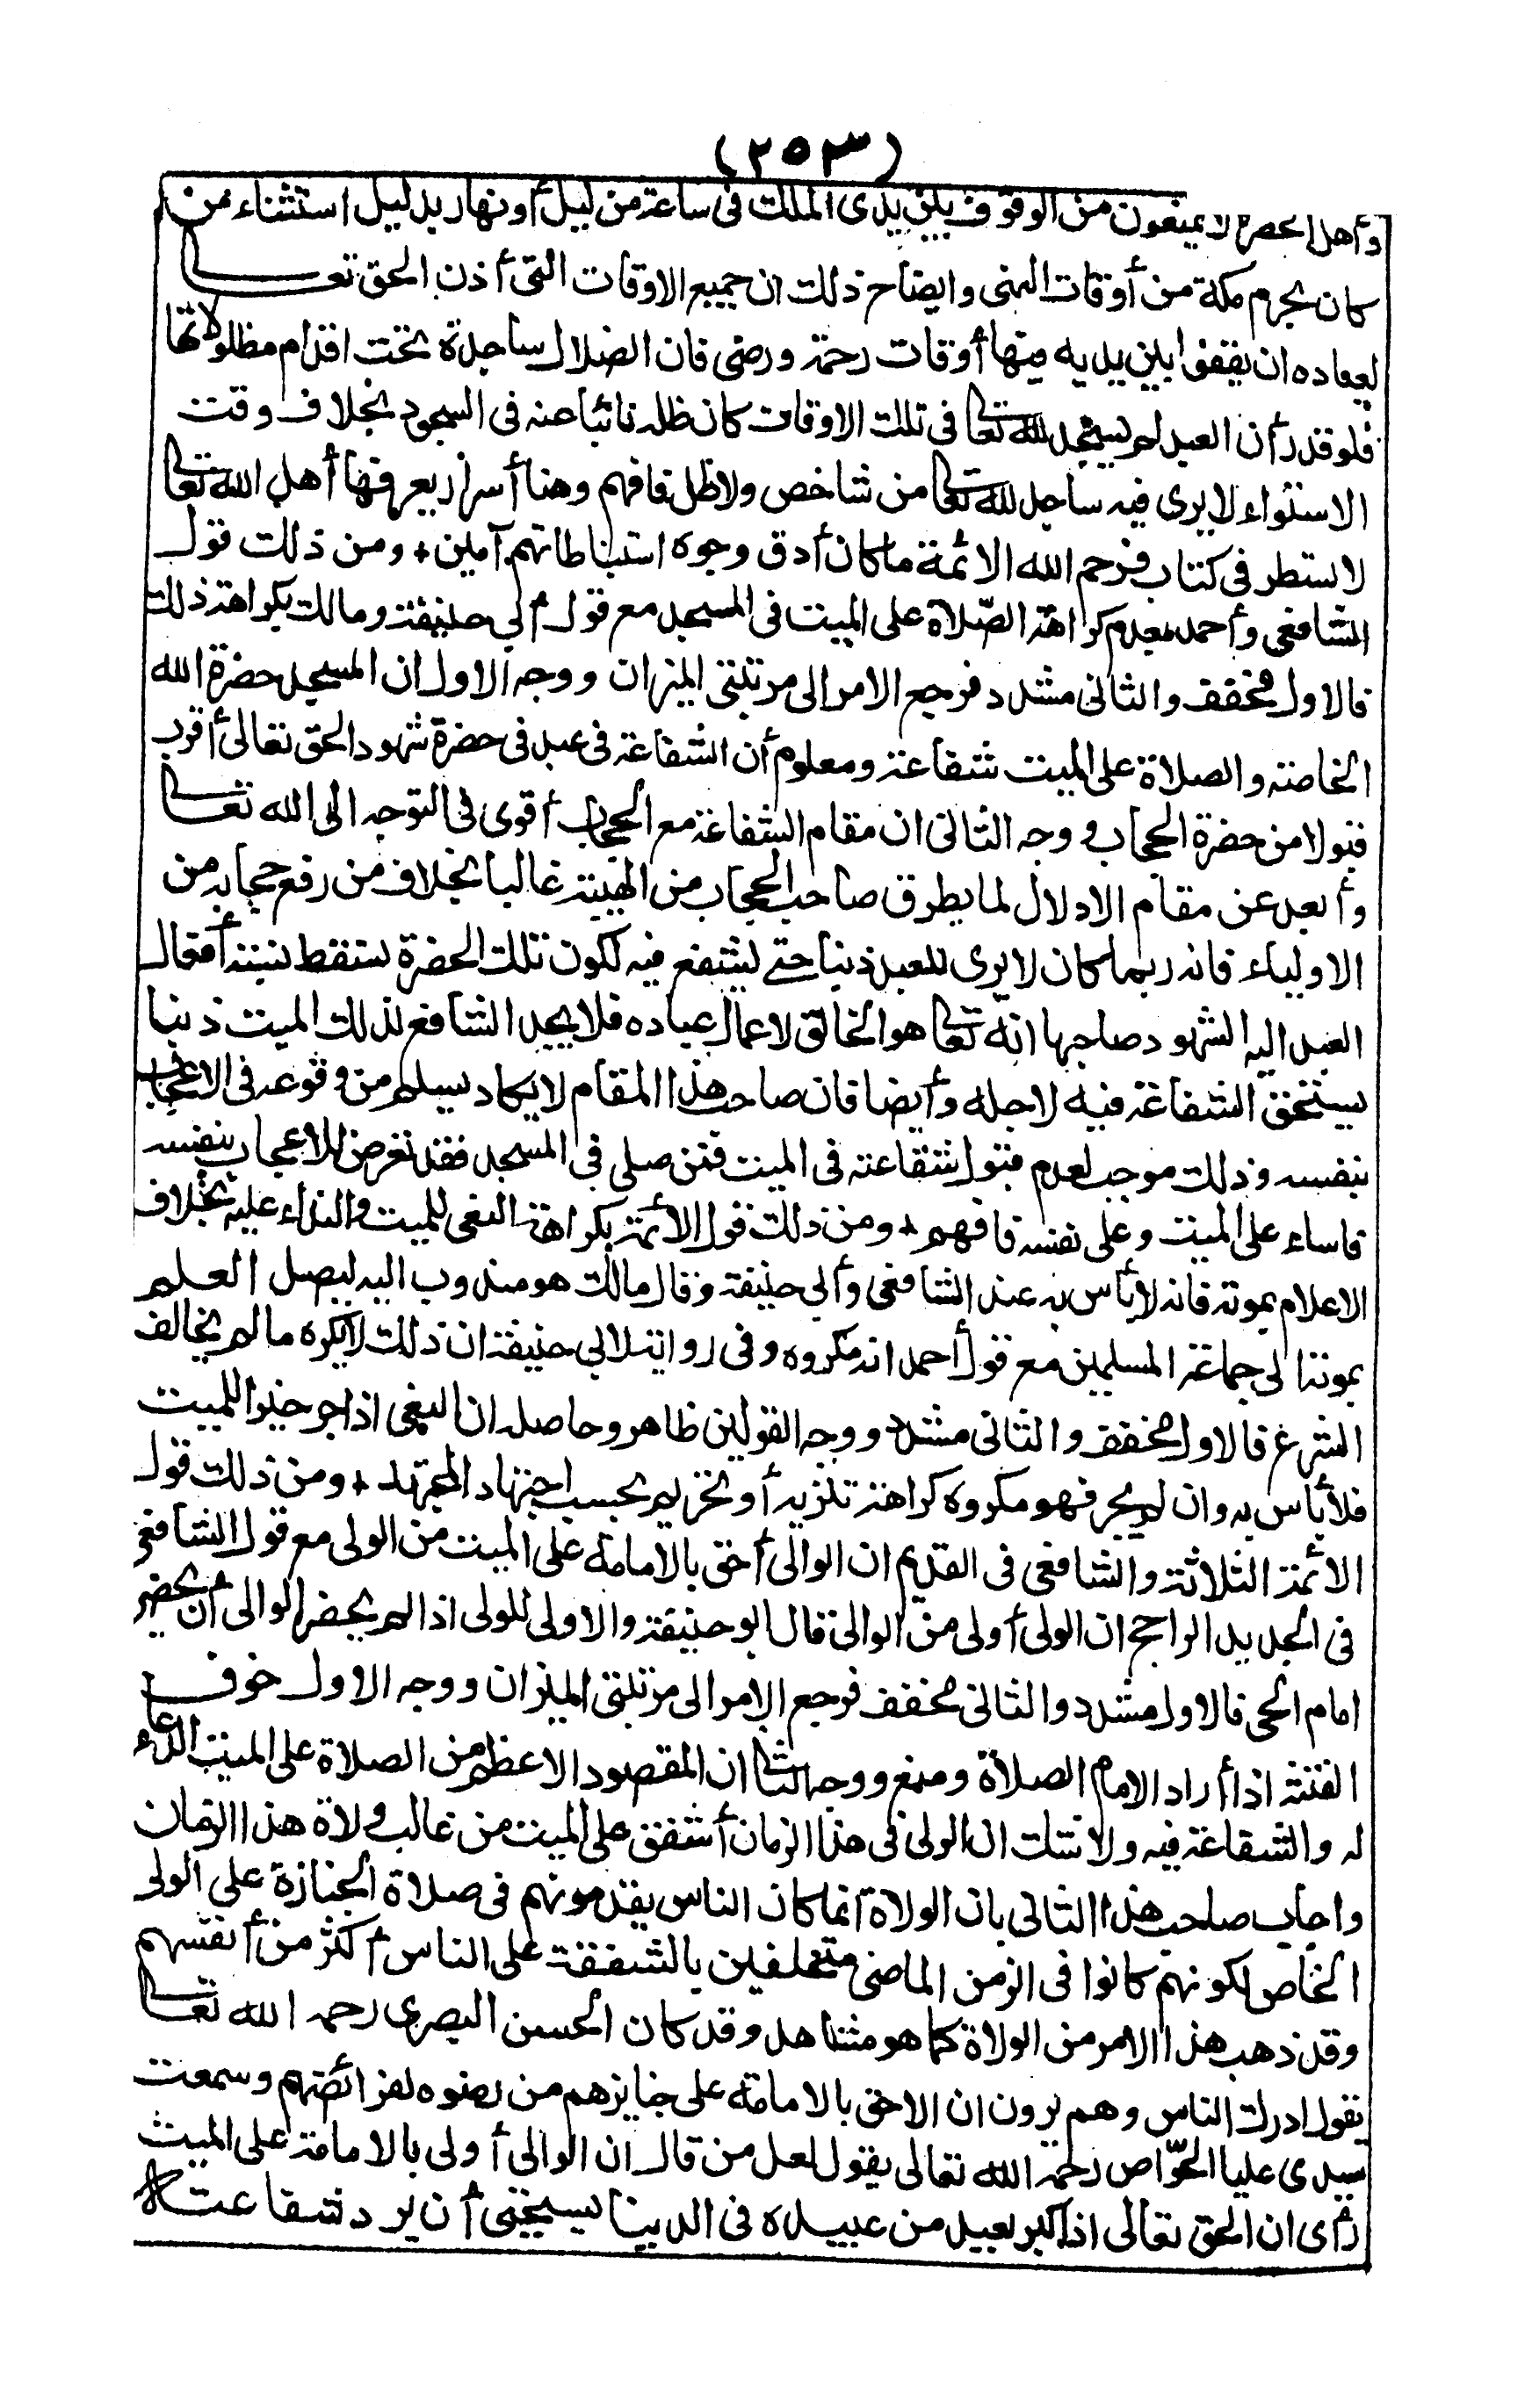 (٢٥٣)
وأهل الحضرة لا يمنعون من الوقوف بين يدى الملك فى ساعة من ليل أو نهار بدليل استثناء من
كان بحرم مكة من أوقات النهى وايضاح ذلك ان جميع الاوقات التى أذن الحق تعالى
لعباده ان يقفوا بين يديه فيها أوقات رحمة ورضى فان الضلال ساجدة تحت اقدام مظلولاتها
فلو قدر أن العبد لم يسجد لله تعالى فى تلك الاوقات كان ظله نائبا عنه فى السجود بخلاف وقت
الاستواء لا يرى فيه ساجد لله تعالى من شاخص ولا ظل فافهم وهنا أسرار يعرفها أهل الله تعالى
لا تسطر فى كتاب فرحم الله الائمة ما كان أدق وجوه استنباطاتهم آمين + ومن ذلك قول
الشافعى وأحمد بعدم كراهة الصّلاة على الميت فى المسجد مع قول أبى حنيفة ومالك بكراهة ذلك
فالاول مخفف والثانى مشدد فرجع الامر الى مرتبتى الميزان ووجه الاول ان المسجد حضرة الله
الخاصة والصلاة على الميت شفاعة ومعلوم أن الشفاعة فى عبد فى حضرة شهود الحق تعالى أقرب
قبولا من حضرة الحجاب ووجه الثانى ان مقام الشفاعة مع الحجاب أقوى فى التوجه الى الله تعالى
وأبعد عن مقام الادلال لما يطرق صاحب الحجاب من الهيبة غالبا بخلاف من رفع حجابه من
الاولياء فانه ربما كان لا يرى للعبد ذنبا حتى يشفع فيه لكون تلك الحضرة تسقط نسبة أفعال
العبد اليه لشهود صاحبها انه تعالى هو الخالق لاعمال عباده فلا يجد الشافع لذلك الميت ذنبا
يستحق الشفاعة فيه لاجله وأيضا فان صاحب هذا المقام لا يكاد يسلم من وقوعه فى الاعجاب
بنفسه وذلك موجب لعدم قبول شفاعته فى الميت فمن صلى فى المسجد فقد تعرض للاعجاب بنفسه
فاساء على الميت وعلى نفسه فافهم + ومن ذلك قول الأئمة بكراهة النعى للميت والنداء عليه بخلاف
الاعلام بموته فانه لا بأس به عند الشافعى وأبى حنيفة وقال مالك هو مندوب اليه ليصل العلم
بموته الى جماعة المسلمين مع قول أحمد انه مكروه وفى رواية لابى حنيفة ان ذلك لا يكره ما لم يخالف
الشرع فالاول مخفف والثانى مشدد ووجه القولين ظاهر وحاصله ان النعى اذا جر خيرا للميت
فلا بأس به وان لم يجر فهو مكروه كراهة تنزيه أو تحريم بحسب اجتهاد المجتهد + ومن ذلك قول
الائمة الثلاثة والشافعى فى القديم ان الوالى أحق بالامامة على الميت من الولى مع قول الشافعى
فى الجديد الراجح ان الولى أولى من الوالى قال أبو حنيفة والاولى للولى اذا لم يحضر الوالى أن يحضر
امام الحى فالاول مشدد والثانى مخفف فرجع الامر الى مرتبتى الميزان ووجه الاول خوف
الفتنة اذا أراد الامام الصلاة ومنع ووجه الثانى ان المقصود الاعظم من الصلاة على الميت الدعاء
له والشفاعة فيه ولا شك ان الولى فى هذا الزمان أشفق على الميت من غالب ولاة هذا الزمان
واجاب صاحب هذا الثانى بان الولاة انما كان الناس يقدمونهم فى صلاة الجنازة على الولى
الخاص لكونهم كانوا فى الزمن الماضى متخلقين بالشفقة على الناس أكثر من أنفسهم
وقد ذهب هذا الامر من الولاة كما هو مشاهد وقد كان الحسن البصرى رحمه الله تعالى
يقول ادرك الناس وهم يرون ان الاحق بالامامة على جنايزهم من رضوه لفرائضهم وسمعت
سيدى عليا الخوّاص رحمه الله تعالى يقول لعل من قال ان الوالى أولى بالامامة على الميت
رأى ان الحق تعالى اذا كبر لعبيد من عبيده فى الدنيا يستحيى أن يرد شفاعته